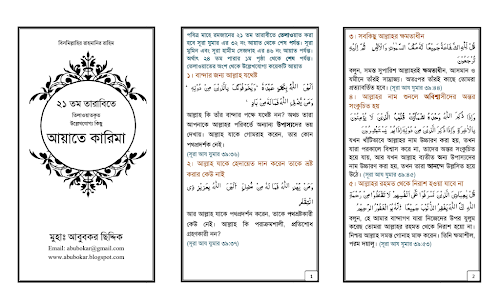 বিসমিল্লাহির রাহমানির রাহিম
২১ তম তারাবিতে
তিলাওয়াতকৃত
উল্লেখযোগ্য কিছু
আয়াতে কারিমা
মুহাঃ আবুবকর ছিদ্দিক
Email: abubokar@gmail.com
www.abubokar.blogspot.com
পবিত্র মাহে রমজানের ২১ তম তারাবীতে তেলাওয়াত করা
হবে সূরা যুমার এর ৩২ নং আয়াত থেকে শেষ পর্যন্ত। সূরা
মুমিন এবং সূরা হামীম সেজদাহ এর ৪৬ নং আয়াত পর্যন্ত।
অর্থাৎ ২৪ তম পারার ১ম পৃষ্ঠা থেকে শেষ পর্যন্ত।
তেলাওয়াতের অংশ থেকে উল্লেখযোগ্য কয়েকটি আয়াত
১। বান্দার জন্য আল্লাহ যথেষ্ট
أَلَيْسَ اللَّهُ بِكَافٍ عَبْدَهُ وَيُخَوِّفُونَكَ بِالَّذِينَ مِنْ دُونِهِ
وَمَنْ يُضْلِلِ اللَّهُ فَمَا لَهُ مِنْ هَادٍ
আল্লাহ কি তাঁর বান্দার পক্ষে যথেষ্ট নন? অথচ তারা
আপনাকে আল্লাহর পরিবর্তে অন্যান্য উপাস্যদের ভয়
দেখায়। আল্লাহ যাকে গোমরাহ করেন, তার কোন
পথপ্রদর্শক নেই।
(সূরা আয যুমার ৩৯:৩৬)
২। আল্লাহ যাকে হেদায়াত দান করেন তাকে ভ্রষ্ট
করার কেউ নাই
وَمَنْ يَهْدِ اللَّهُ فَمَا لَهُ مِنْ مُضِلٍّ أَلَيْسَ اللَّهُ بِعَزِيزٍ ذِي
انْتِقَامٍ
আর আল্লাহ যাকে পথপ্রদর্শন করেন, তাকে পথভ্রষ্টকারী
কেউ নেই। আল্লাহ কি পরাক্রমশালী, প্রতিশোধ
গ্রহণকারী নন?
(সূরা আয যুমার ৩৯:৩৭)
1
৩। সবকিছু আল্লাহর ক্ষমতাধীন
قُلْ لِلَّهِ الشَّفَاعَةُ جَمِيعًا لَهُ مُلْكُ السَّمَاوَاتِ وَالْأَرْضِ ثُمَّ إِلَيْهِ
تُرْجَعُونَ
বলুন, সমস্ত সুপারিশ আল্লাহরই ক্ষমতাধীন, আসমান ও
যমীনে তাঁরই সাম্রাজ্য। অতঃপর তাঁরই কাছে তোমরা
প্রত্যাবর্তিত হবে। (সূরা আয যুমার ৩৯:৪৪)
৪। আল্লাহর নাম শুনলে অবিশ্বাসীদের অন্তর
সংকুচিত হয়
যখন খাঁটিভাবে আল্লাহর নাম উচ্চারণ করা হয়, তখন
যারা পরকালে বিশ্বাস করে না, তাদের অন্তর সংকুচিত
হয়ে যায়, আর যখন আল্লাহ ব্যতীত অন্য উপাস্যদের
নাম উচ্চারণ করা হয়, তখন তারা আনন্দে উল্লসিত হয়ে
উঠে। (সূরা আয যুমার ৩৯:৪৫)
৫। আল্লাহর রহমত থেকে নিরাশ হওয়া যাবে না
বলুন, হে আমার বান্দাগণ যারা নিজেদের উপর যুলুম
করেছ তোমরা আল্লাহর রহমত থেকে নিরাশ হয়ো না।
নিশ্চয় আল্লাহ সমস্ত গোনাহ মাফ করেন। তিনি ক্ষমাশীল,
পরম দয়ালু। (সূরা আয যুমার ৩৯:৫৩)
2